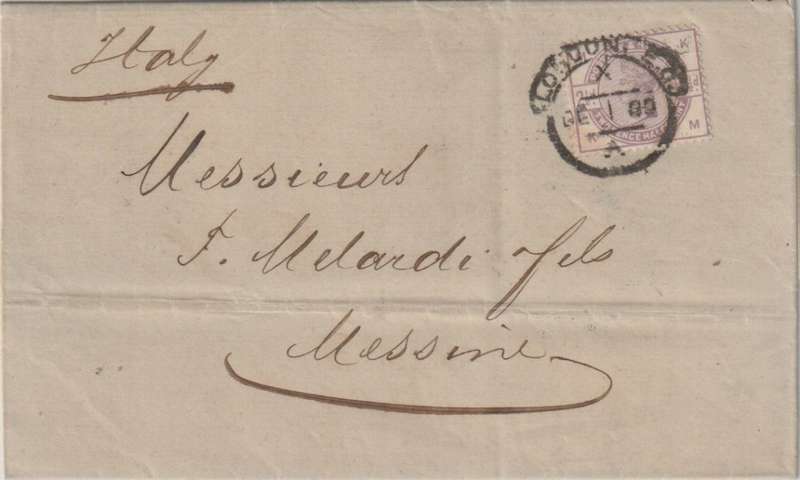 Italy
LONDON, E.C.
X
DE 1
A
K
M
Messieurs
F. Melardi fils
Messine